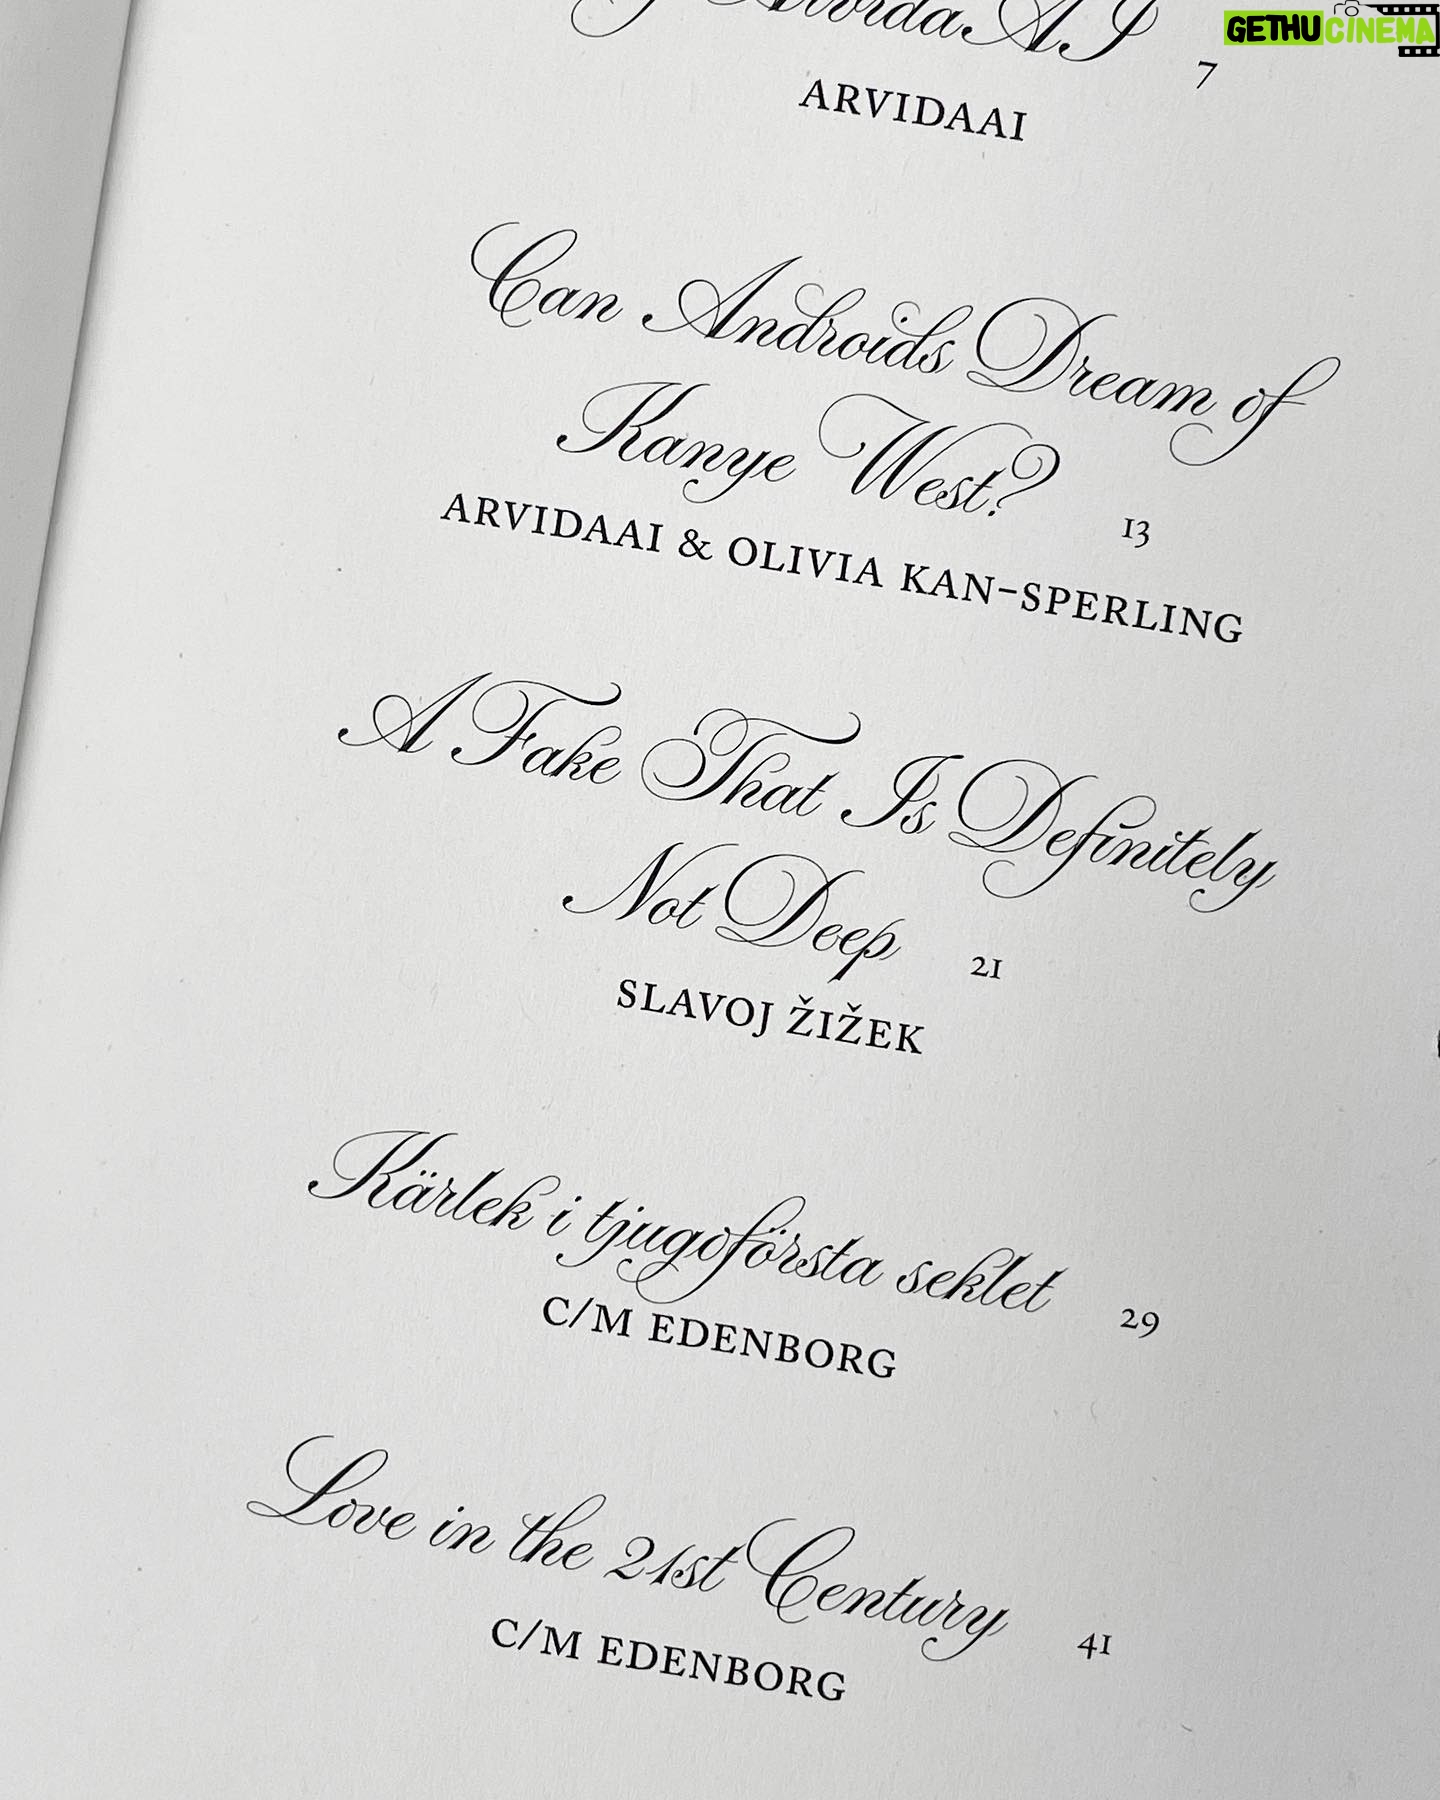 GETHUCINEMA
ArvidaAI 7
ARVIDAAI
Can Androids Dream of
Kanye West? 13
ARVIDAAI & OLIVIA KAN-SPERLING
A Fake That Is Definitely
Not Deep 21
SLAVOJ ŽIŽEK
Kärlek i tjugoförsta seklet 29
C/M EDENBORG
Love in the 21st Century 41
C/M EDENBORG